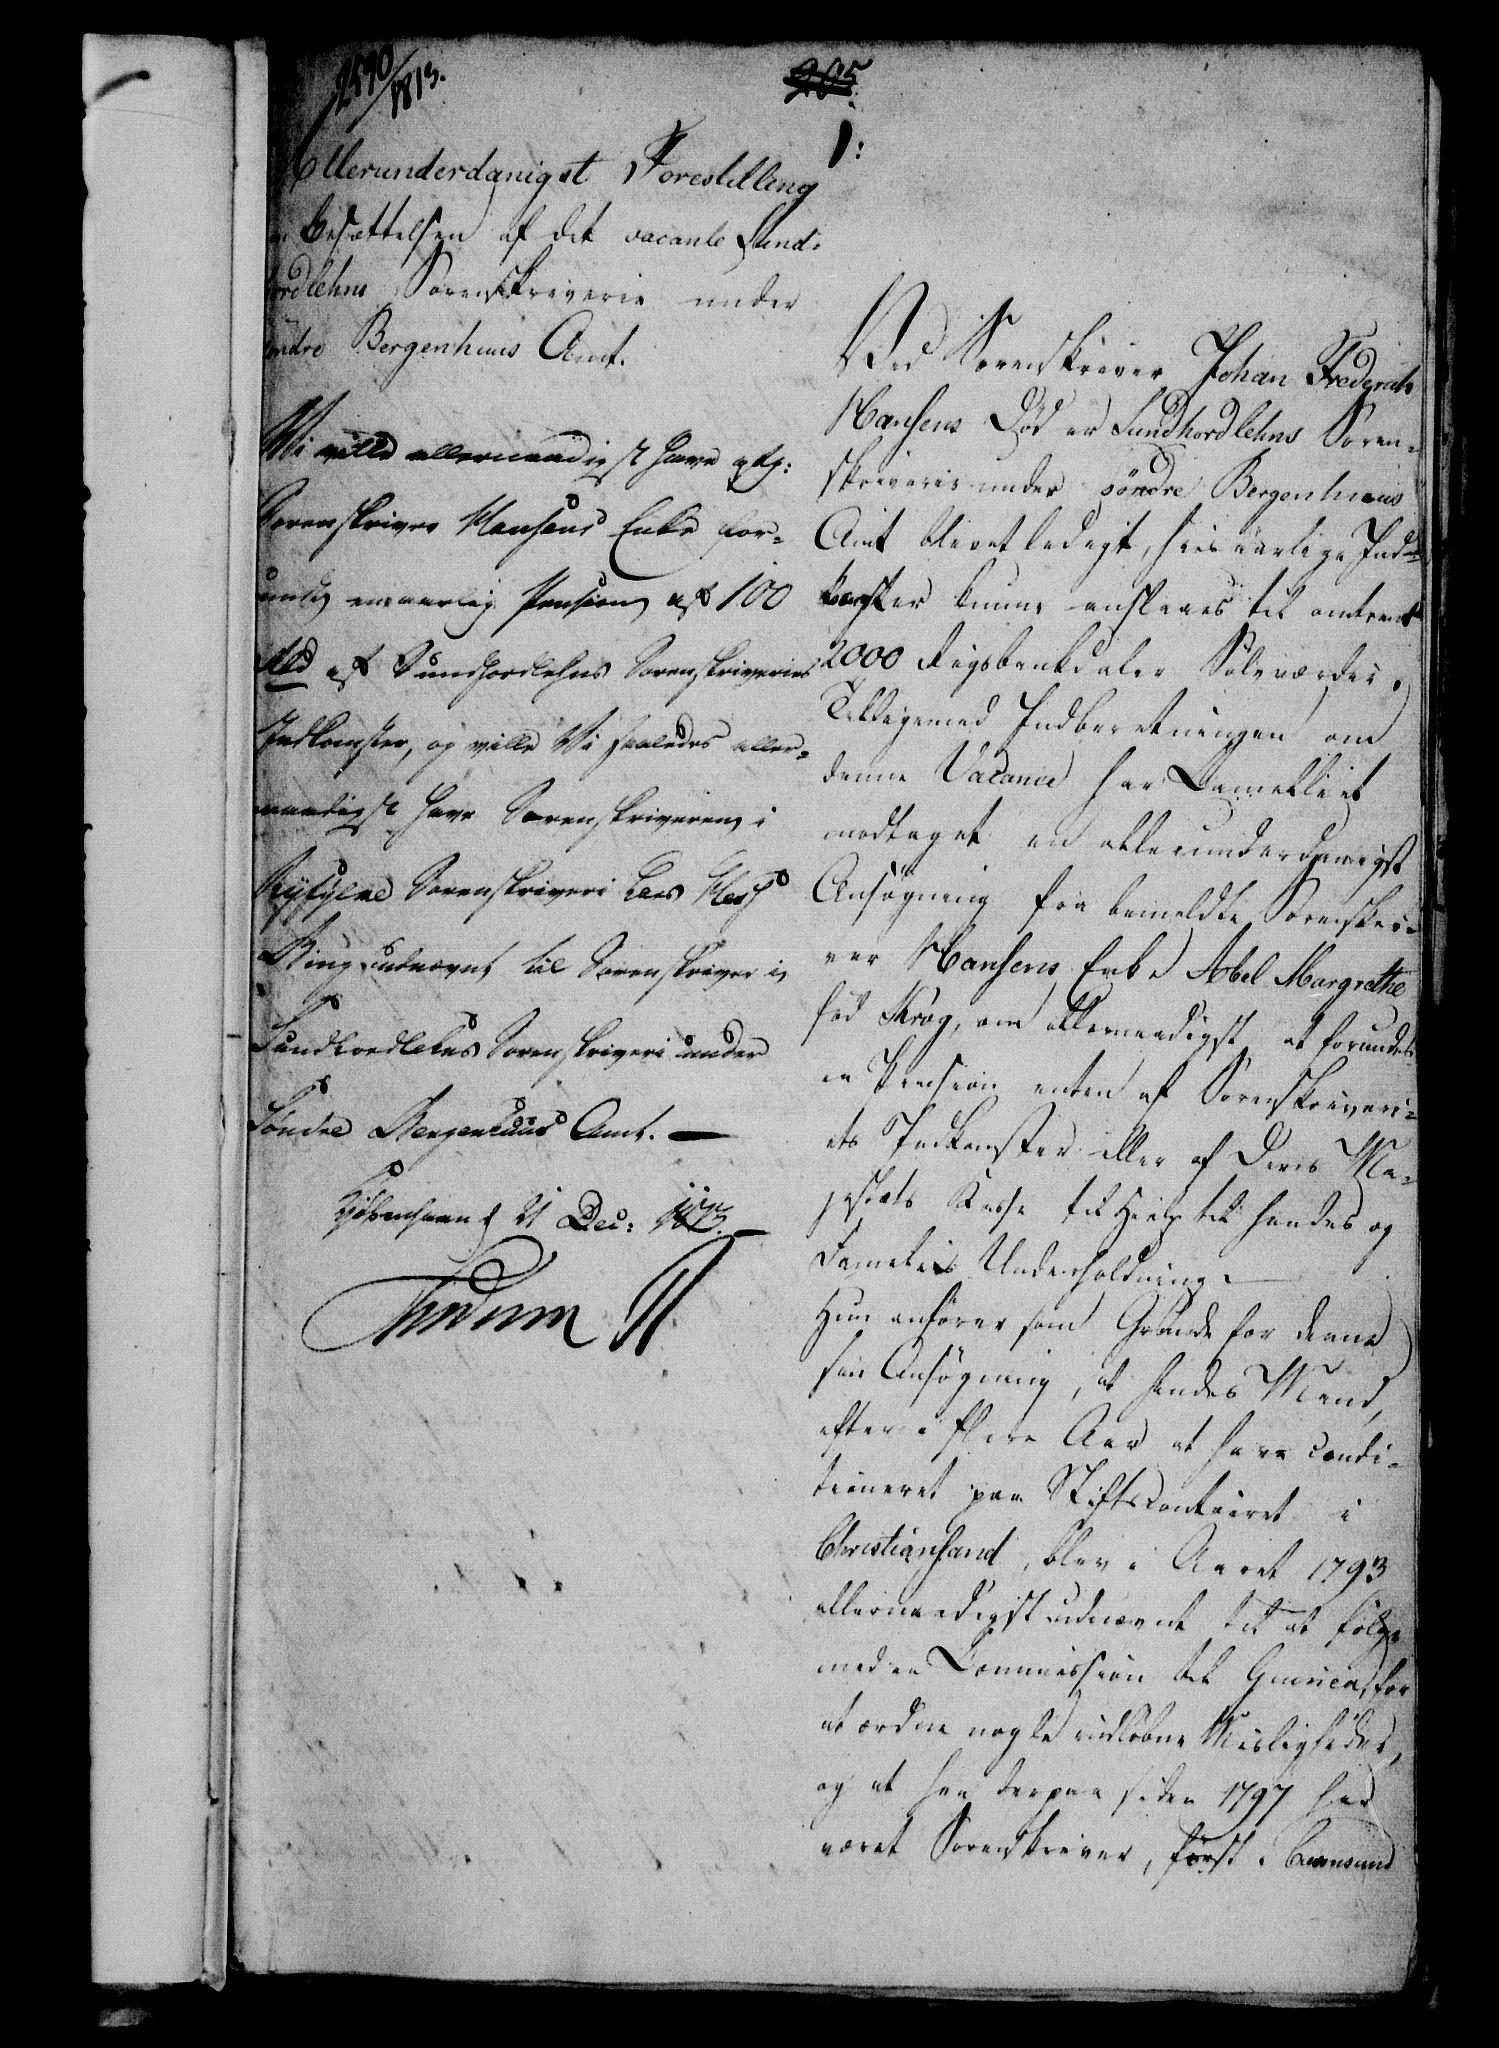 2590/1813.
205.
1:
Allerunderdanigst Forestilling
Besættelsen af det vacante Sund-
hordlehns Sorenskriverie under
Søndre Bergenhuus Amt.
Vi ville allernaadigst have afg:
Sorenskriver Hansens Enke for-
undt en aarlig Pension af 100
Rbd af Sundhordlehns Sorenskriveries
Indkomster, og ville Vi saaledes aller-
naadigst have Sorenskriveren i
Ryfylke Sorenskriveri Lars
Bing udnævnt til Sorenskriver i
Sundhordlehns Sorenskriveri under
Søndre Bergenhuus Amt. —
Kjøbenhavn d 21 Dec: 1813. —
Frederik R
Ved Sorenskriver Johan Frederich
Hansens Død er Sundhordlehns Soren-
skriverie under søndre Bergenhuus
Amt blevet ledigt, hvis aarlige Ind-
komster kunne anslaaes til omtrent
2000 Rigsbankdaler Sølvværdie.
Tilligemed Indberetningen om
denne Vacance har Cancelliet
modtaget en allerunderdanigst
Ansøgning fra bemeldte Sorenskri-
ver Hansens Enke Abel Margrethe
fød Krog, om allernaadigst at forundes
en Pension enten af Sorenskriveri-
ets Indkomster eller af Deres Ma-
jestæts Kasse til Hielp til hendes og
Families Underholdning. —
Hun anfører som Grunde for denne
sin Ansøgning, at hendes Mand,
efter i flere Aar at have condi-
tioneret paa Stiftscontoiret i
Christiansand, blev i Aaret 1793
allernaadigst udnævnt til at følge
med en Commission til Guinea, for
at ordne nogle indløbne Misligheder,
og at han derpaa siden 1797 har
været Sorenskriver, først i